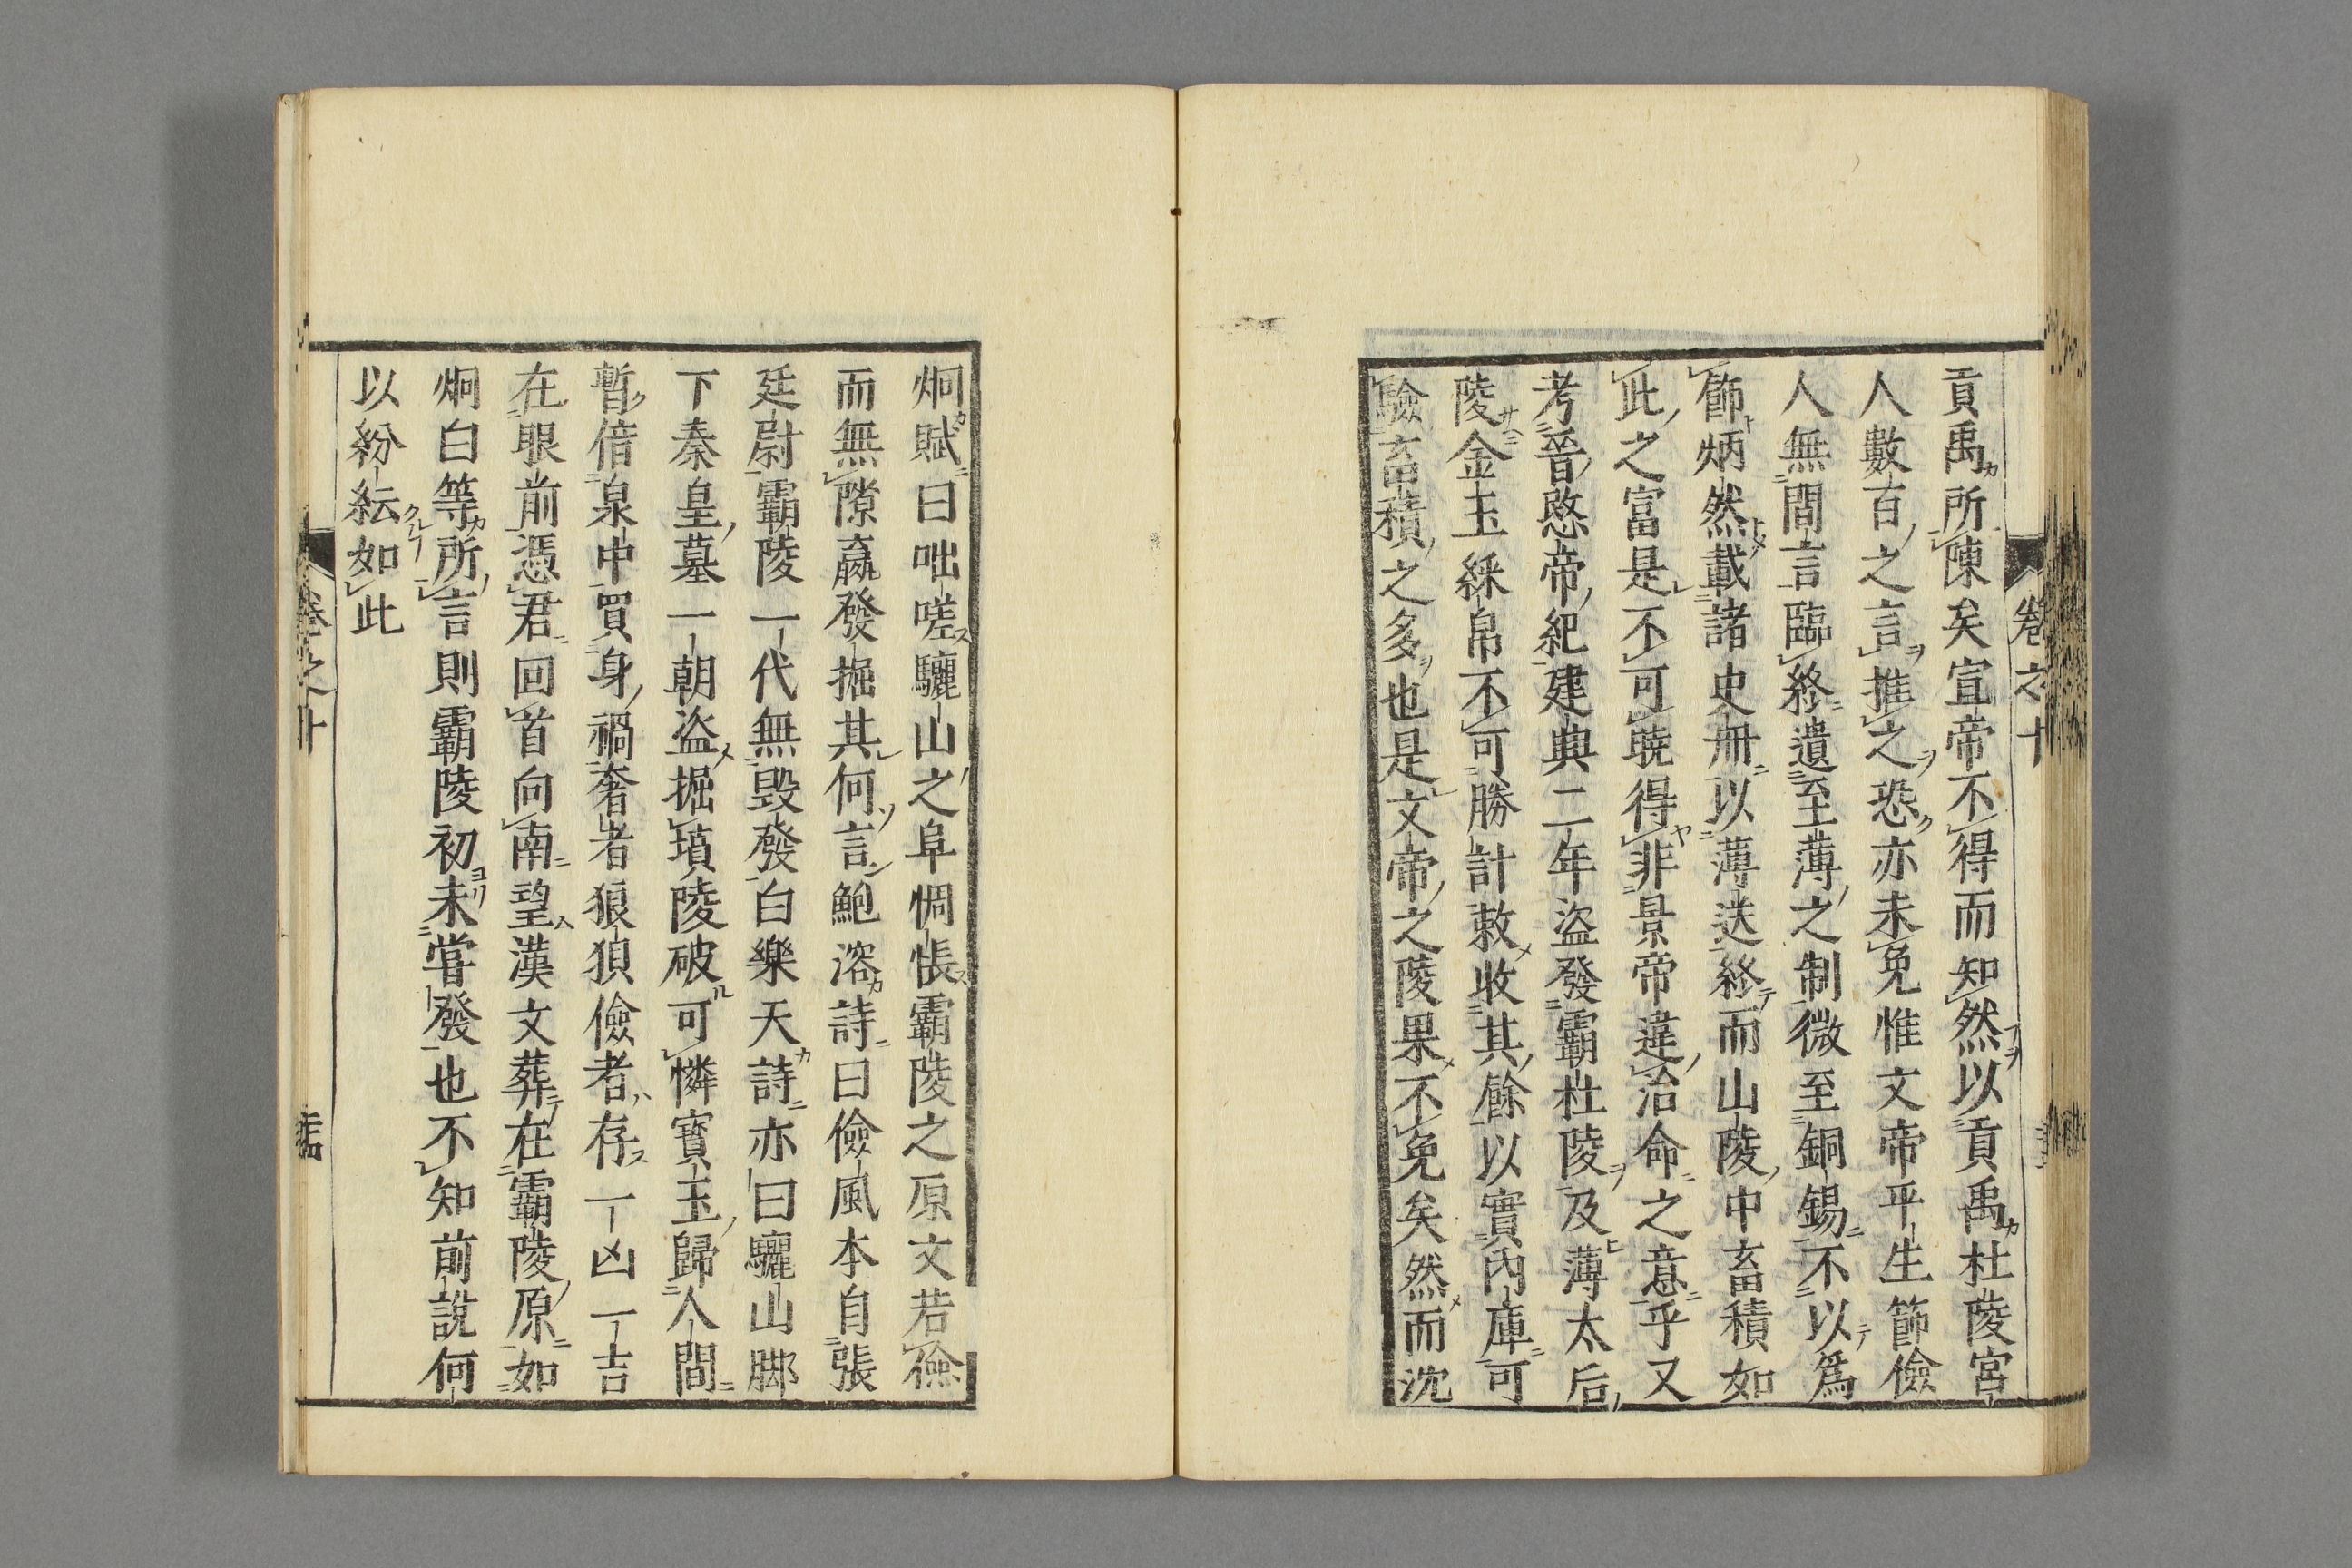 貢禹所陳矣宣帝不得而知然以貢禹杜陵宮
人數百之言推之恐亦未免惟文帝平生節儉
人無間言臨終遺至薄之制微至銅錫不以爲
飾炳然載諸史冊以薄送終而山陵中畜積如
此之富是不可曉得非景帝違治命之意乎又
考晉愍帝紀建典二年盜發霸杜陵及薄太后
陵金玉綵帛不可勝計敕收其餘以實內庫可
驗畜積之多也是文帝之陵果不免矣然而沈
炯賦曰咄嗟驪山之阜惆悵霸陵之原文若儉
而無隙嬴發掘其何言鮑溶詩曰儉風本自張
廷尉霸陵一代無毀發白樂天詩亦曰驪山脚
下秦皇墓一朝盜掘墳陵破可憐寳玉歸人間
暫借泉中買身禍奢者狼狽儉者存一凶一吉
在眼前憑君回首向南望漢文葬在霸陵原如
炯白等所言則霸陵初未嘗發也不知前說何
以紛紜如此
卷之十